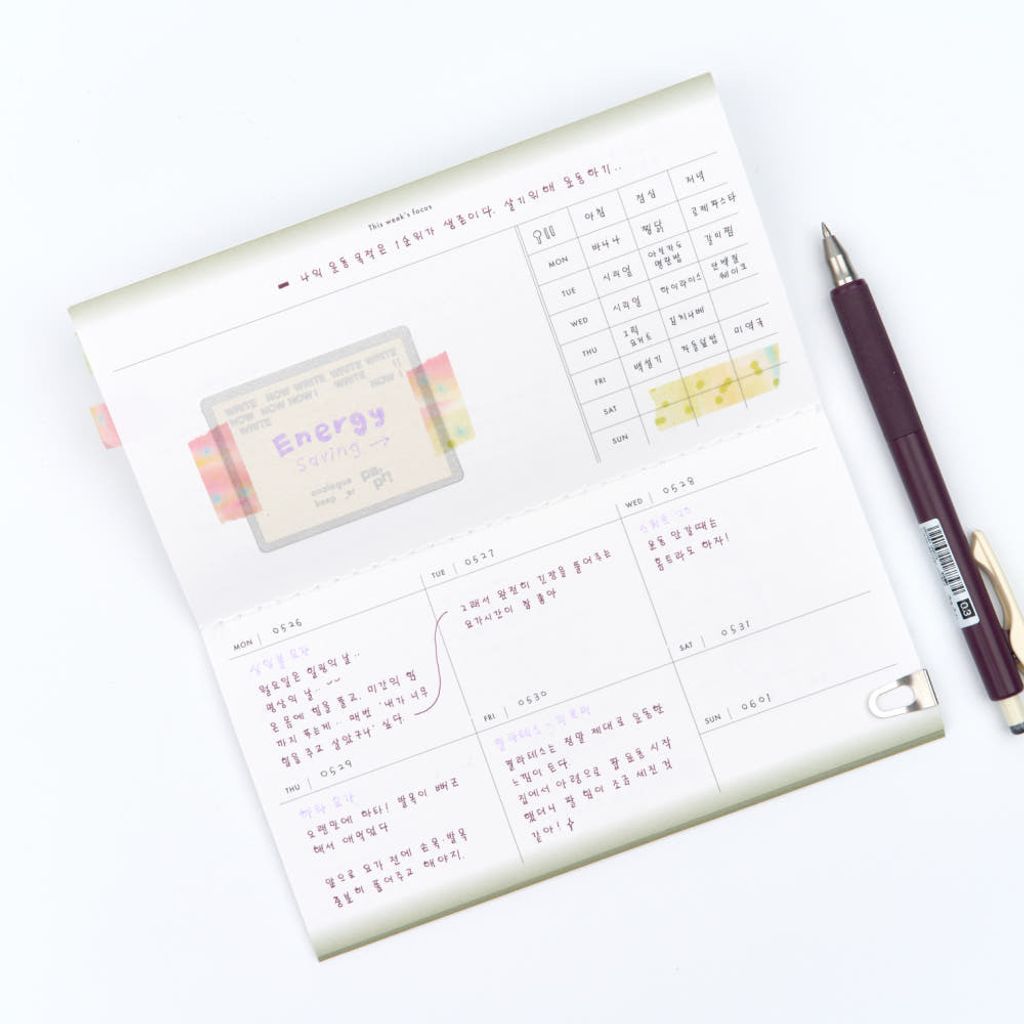 This week's focus
- 나의 운동 목적은 1순위가 생존이다. 살기위해 운동하기..
아침 점심 저녁
MON 바나나 찜닭 로제파스타
TUE 시리얼 아보카도 명란밥 갈비찜
WED 시리얼 하이라이스 단백질 쉐이크
THU 그릭 요거트 김치나베
FRI 백설기 차돌덮밥 미역국
SAT
SUN
WRITE NOW WRITE WRITE WRITE
NOW NOW NOW! WRITE !!
WRITE NOW!
Energy
saving →
analogue
keep_er
pa.
pri
MON | 0526
월요일은 힐링의 날..
명상의 날..
온 몸에 힘을 풀고, 미간의 힘
까지 푸는게.. 매번 '내가 너무
힘을 주고 살았구나' 싶다.
TUE | 0527
그래서 완전히 긴장을 풀어주는
요가시간이 참 좋아
WED | 0528
운동 안 갈때는
홈트라도 하자!
THU | 0529
하타 요가
오랜만에 하타! 발목이 뻐근
해서 애먹었다
앞으로 요가 전에 손목·발목
충분히 풀어주고 해야지.
FRI | 0530
필라테스는 정말 제대로 운동한
느낌이 든다.
집에서 아령으로 팔 운동 시작
했더니 팔 힘이 조금 세진 것
같아!
SAT | 0531
SUN | 0601
0.3